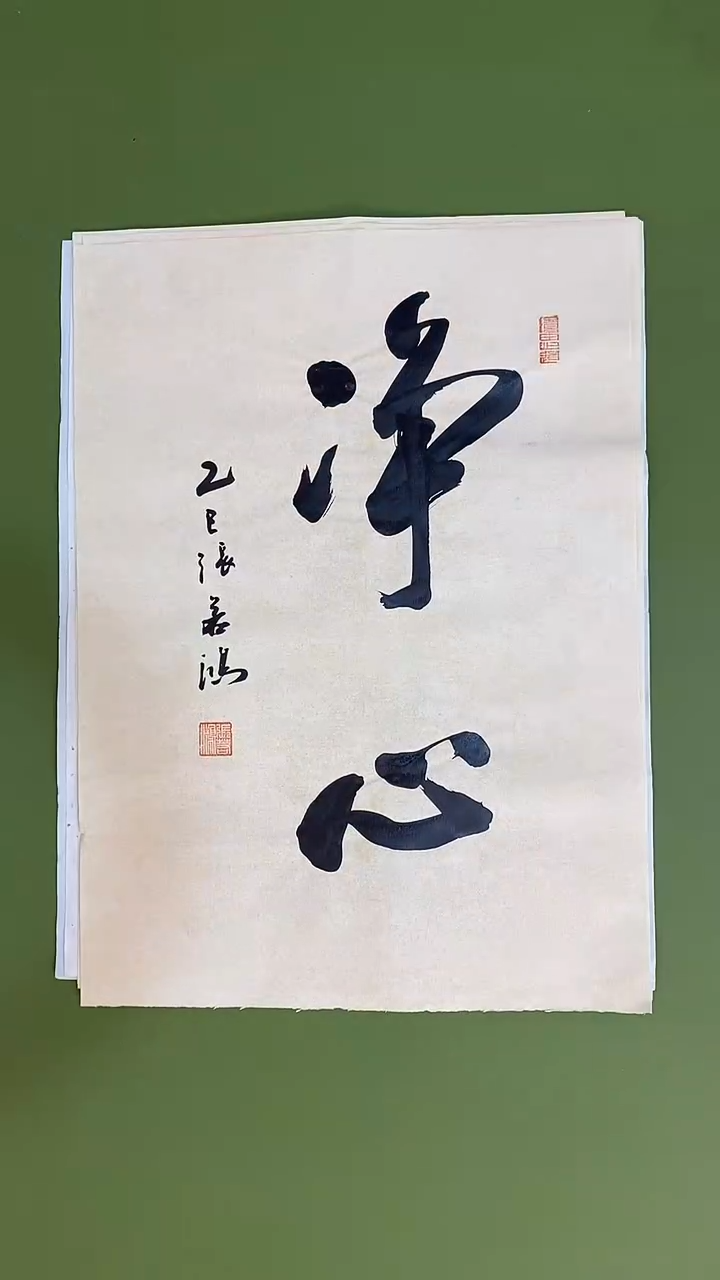 净心
乙巳张若鸿